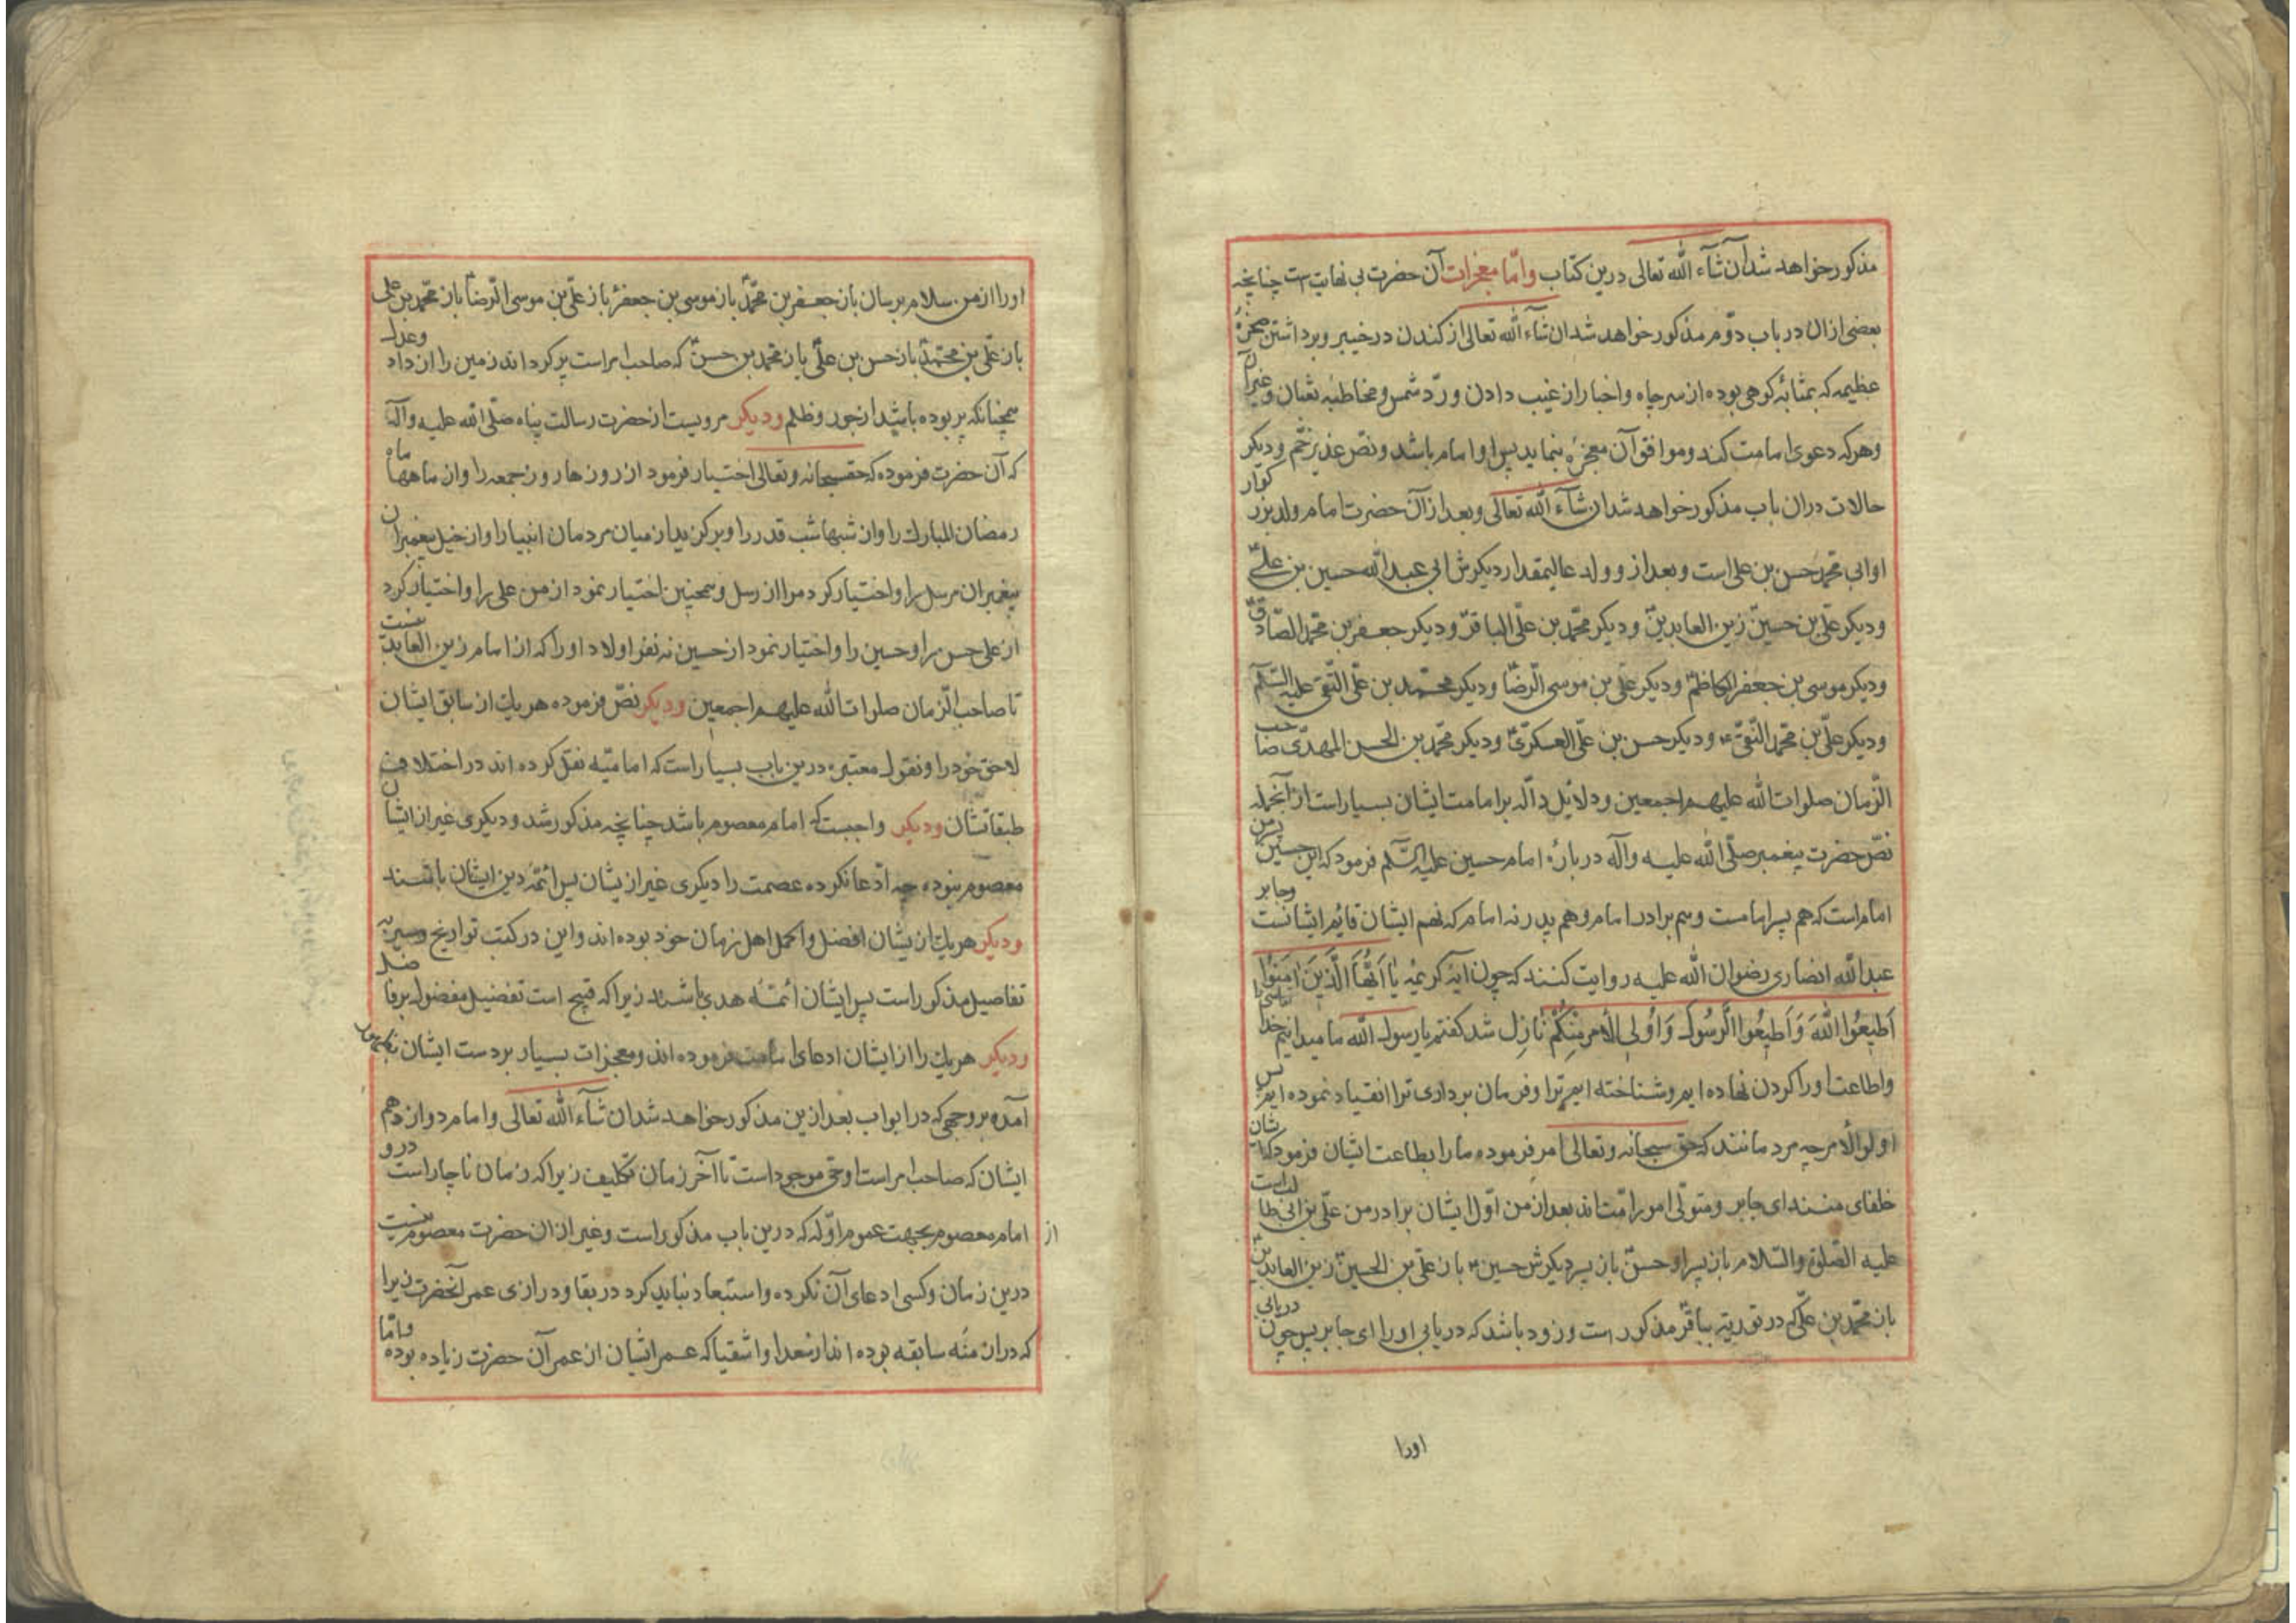 مذکور خواهد شد ان شآء الله تعالی درین کتاب وامّا معجزات آن حضرت بی نهایت است چنانچه
بعضی ازان در باب دوّم مذکور خواهد شد ان شآء الله تعالی از کندن در خیبر و برداشتن صخرهٔ
عظیمه که بمثابهٔ کوهی بوده از سر چاه واخبار از غیب دادن و ردّ شمس و مخاطبه ثعبان وغیر آن
وهر که دعوی امامت کند و موافق آن معجزه بنماید پس او امام باشد ونصّ غدیر خم ودیکر
حالات دران باب مذکور خواهد شد ان شآء الله تعالی و بعد از آن حضرت امام ولد بزرکوار
او ابی محمّد حسن بن علی است و بعد از و ولد عالیمقدار دیکرش ابی عبد الله حسین بن علی
ودیکر علیّ بن حسین زین العابدین ودیکر محمّد بن علیّ الباقر ودیکر جعفر بن محمّد الصّادق
ودیکر موسی بن جعفر الکاظم ودیکر علیّ بن موسی الرّضا ودیکر محمّد بن علیّ التّقی علیه السّلم
ودیکر علیّ بن محمّد النّقی ودیکر حسن بن علیّ العسکری ودیکر محمّد بن الحسن المهدّی صاحب
الزّمان صلوات الله علیهم اجمعین ودلائل دالّه بر امامت ایشان بسیار است از آنجمله
نصّ حضرت پیغمبر صلّی الله علیه وآله در بارهٔ امام حسین علیه السّلم فرمود که این حسین پسر من
امام است که هم پسر امامست وهم برادر امام وهم پدر نه امام که نهم ایشان قایم ایشانست وجابر
عبد الله انصاری رضوان الله علیه روایت کنند که چون ایهٔ کریمهٔ یا اَیُّهَا الَّذینَ امَنُوا
اَطیعُوا اللهَ وَاَطیعُوا الرَّسُولَ وَاُولِی الْاَمْرِ مِنْکُمْ نازل شد کفتم یا رسول الله ما میدانیم خدا
واطاعت او را کردن نهاده ایم وشناخته ایم ترا وفرمان برداری ترا انقیاد نموده ایم پس
اولوالامر چه مردمانند که حق سبحانه وتعالی امر فرموده ما را بطاعت ایشان فرمود که ایشان
خلفای منند ای جابر ومتولّی امور امّت اند بعد از من اوّل ایشان برادر من علیّ بن ابی طالب است
علیه الصّلوة والسّلام باز پسر او حسن باز پسر دیکرش حسین باز علیّ بن الحسین زین العابدین
باز محمّد بن علی که در توریة بباقر مذکور است وزود باشد که دریابی او را ای جابر پس چون دریابی
اورا
او را از من سلام برسان باز جعفر بن محمّد باز موسی بن جعفر باز علیّ بن موسی الرّضا باز محمّد بن علی
باز علیّ بن محمّد باز حسن بن علی باز محمد بن حسن که صاحب امر است پر کرداند زمین را از داد وعدل
همچنانکه پر بوده باشد از جور وظلم ودیکر مرویست از حضرت رسالت پناه صلّی الله علیه وآله
که آن حضرت فرموده که حق سبحانه وتعالی اختیار فرمود از روزها روز جمعه را واز ماهها ماه
رمضان المبارک را واز شبها شب قدر را وبرکزید از میان مردمان انبیا را واز خیل پیغمبران
پیغمبران مرسل را واختیار کرد مرا از رسل وهمچنین اختیار نمود از من علی را واختیار کرد
از علی حسن را وحسین را واختیار نمود از حسین نه نفر اولاد او را که از امام زین العابدینست
تا صاحب الزّمان صلوات الله علیهم اجمعین ودیکر نصّ فرموده هر یک از سابق ایشان
لاحق خود را ونقول معتبره درین باب بسیار است که امامیّه نقل کرده اند در اختلاف
طبقاتشان ودیکر واجبست که امام معصوم باشد چنانچه مذکور شد ودیکری غیر از ایشان
معصوم نبوده چه ادّعا نکرده عصمت را دیکری غیر ازیشان پس ائمّهٔ دین ایشان باشند
ودیکر هر یک ازیشان افضل واکمل اهل زمان خود بوده اند واین در کتب تواریخ وسیر به
تفاصیل مذکور است پس ایشان ائمّهٔ هدی باشند زیرا که قبیح است تفضیل مفضول بر فاضل
ودیکر هر یک را از ایشان ادعای امامت فرموده اند ومعجزات بسیار بر دست ایشان
آمده بر وجهی که در ابواب بعد ازین مذکور خواهد شد ان شآء الله تعالی وامام دوازدهم
ایشان که صاحب امر است او حی موجود است تا آخر زمان تکلیف زیرا که زمان ناچار است درو
از امام معصوم بجهت عموم ادّله که درین باب مذکور است وغیر از ان حضرت معصوم نیست
درین زمان وکسی ادعای آن نکرده واستبعاد نباید کرد در بقا ودرازی عمر آنحضرت زیرا
که دران منه سابقه بوده اند از سعدا واشقیا که عمر ایشان از عمر آن حضرت زیاده بوده وامّا